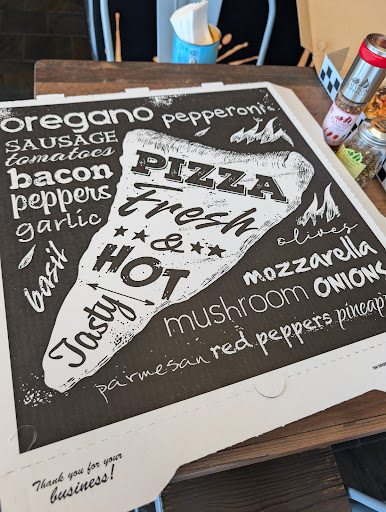 oregano pepperoni
SAUSAGE
tomatoes
bacon
peppers
garlic
basil
PIZZA
Fresh
&
HOT
Tasty
olives
mozzarella
mushroom ONIONS
parmesan red peppers pineapple
Thank you for your
business!